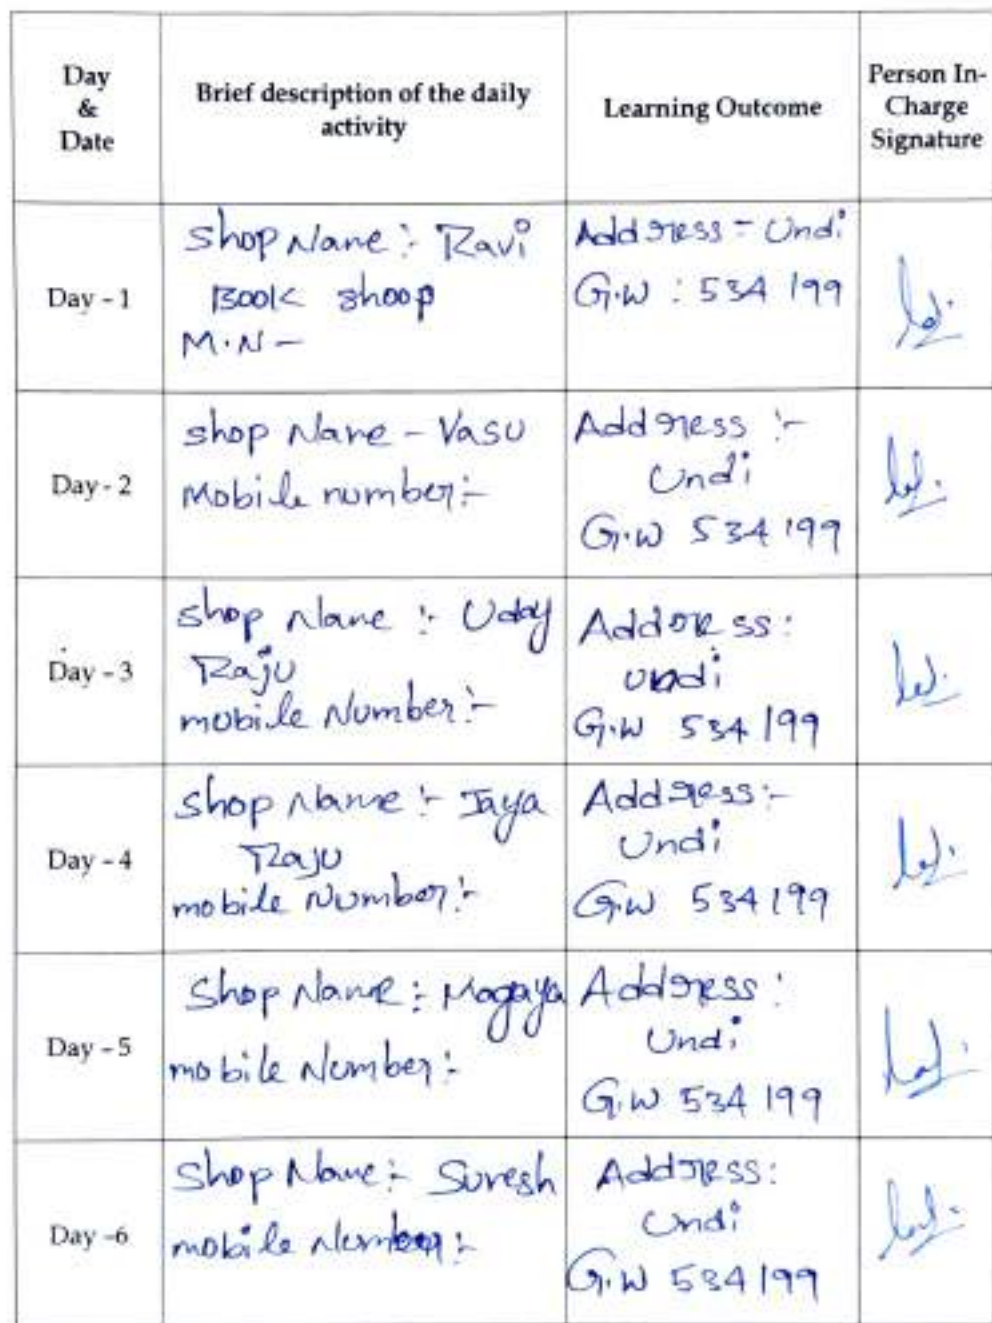 Day
&
Date
Brief description of the daily
activity
Learning Outcome
Person In-
Charge
Signature
Day - 1
Shop Name :- Ravi
Book shoop
M.N -
Address - Undi
G.W : 534 199
Day - 2
shop Name - Vasu
Mobile number :-
Address :-
Undi
G.W 534 199
Day - 3
shop Name :- Uday
Raju
mobile Number :-
Address :
undi
G.W 534 199
Day - 4
shop Name :- Jaya
Raju
mobile Number :-
Address :-
Undi
G.W 534 199
Day - 5
Shop Name :- Magaya
mobile Number :-
Address :
Undi
G.W 534 199
Day -6
Shop Name :- Suresh
mobile Number :-
Address :
Undi
G.W 534 199